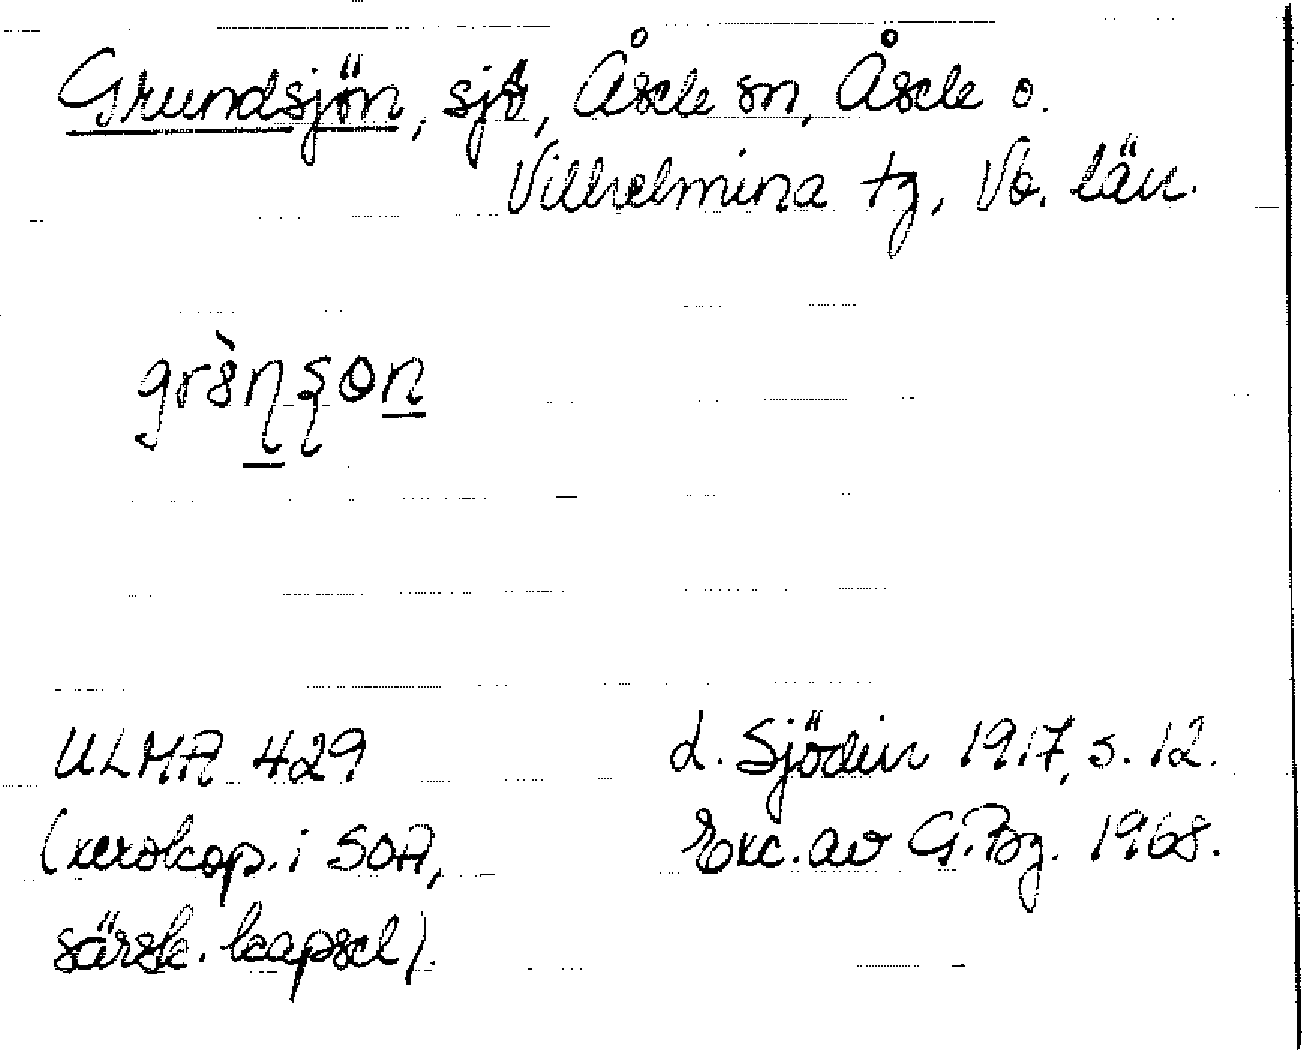 Grundsjön, sjö, Åsele sn, Åsele o.
Vilhelmina tg, Vb. län.
ULMA 429
(xerokop. i SOA,
särsk. kapsel).
L. Sjödin 1917, s. 12.
Exc. av G. Bg. 1968.